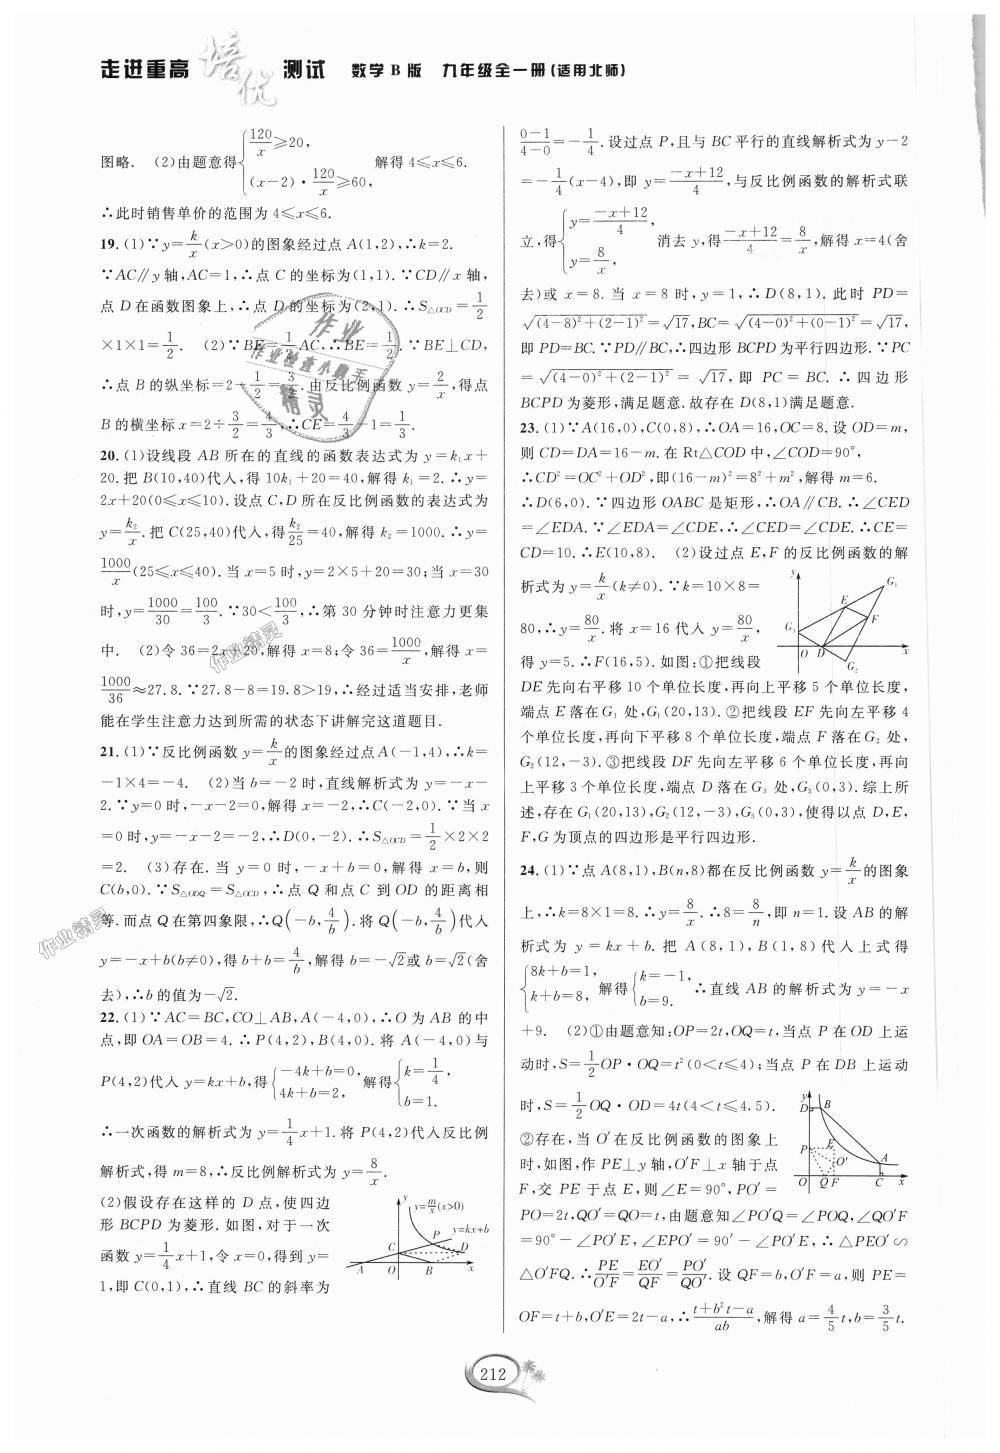 走进重高 培优 测试 数学B版 九年级全一册(适用北师)
图略. (2)由题意得{120/x≥20, (x−2)·120/x≥60, 解得 4≤x≤6.
∴此时销售单价的范围为 4≤x≤6.
19.(1)∵y=k/x(x>0)的图象经过点 A(1,2),∴k=2.
∵AC∥y 轴,AC=1,∴点 C 的坐标为(1,1). ∵CD∥x 轴,
点 D 在函数图象上,∴点 D 的坐标为(2,1). ∴S△OCD=1/2
×1×1=1/2. (2)∵BE=1/2AC,∴BE=1/2. ∵BE⊥CD,
∴点 B 的纵坐标=2−1/2=3/2. 由反比例函数 y=2/x,得点
B 的横坐标 x=2÷3/2=4/3,∴CE=4/3−1=1/3.
20.(1)设线段 AB 所在的直线的函数表达式为 y=k₁x+
20. 把 B(10,40)代入,得 10k₁+20=40,解得 k₁=2. ∴y=
2x+20(0≤x≤10). 设点 C,D 所在反比例函数的表达式为
y=k₂/x. 把 C(25,40)代入,得k₂/25=40,解得 k₂=1000. ∴y=
1000/x(25≤x≤40). 当 x=5 时,y=2×5+20=30;当 x=30
时,y=1000/30=100/3. ∵30<100/3,∴第 30 分钟时注意力更集
中. (2)令 36=2x+20,解得 x=8;令 36=1000/x,解得 x=
1000/36≈27.8. ∵27.8−8=19.8>19,∴经过适当安排,老师
能在学生注意力达到所需的状态下讲解完这道题目.
21.(1)∵反比例函数 y=k/x的图象经过点 A(−1,4),∴k=
−1×4=−4. (2)当 b=−2 时,直线解析式为 y=−x−
2. ∵y=0 时,−x−2=0,解得 x=−2,∴C(−2,0). ∵当 x
=0 时,y=−x−2=−2,∴D(0,−2). ∴S△OCD=1/2×2×2
=2. (3)存在. 当 y=0 时,−x+b=0,解得 x=b,则
C(b,0). ∵S△ODQ=S△OCD,∴点 Q 和点 C 到 OD 的距离相
等. 而点 Q 在第四象限,∴Q(−b,4/b). 将 Q(−b,4/b)代入
y=−x+b(b≠0),得 b+b=4/b,解得 b=−√2或 b=√2(舍
去),∴b 的值为−√2.
22.(1)∵AC=BC,CO⊥AB,A(−4,0),∴O 为 AB 的中
点,即 OA=OB=4. ∴P(4,2),B(4,0). 将 A(−4,0)与
P(4,2)代入 y=kx+b,得{−4k+b=0, 4k+b=2, 解得{k=1/4, b=1.
∴一次函数的解析式为 y=1/4x+1. 将 P(4,2)代入反比例
解析式,得 m=8,∴反比例解析式为 y=8/x.
(2)假设存在这样的 D 点,使四边
形 BCPD 为菱形. 如图,对于一次
函数 y=1/4x+1,令 x=0,得到 y=
1,即 C(0,1),∴直线 BC 的斜率为
y y=m/x(x>0)
P y=kx+b
C D
A O B x
0−1/4−0=−1/4. 设过点 P,且与 BC 平行的直线解析式为 y−2
=−1/4(x−4),即 y=−x+12/4,与反比例函数的解析式联
立,得{y=−x+12/4, y=8/x, 消去 y,得−x+12/4=8/x,解得 x=4(舍
去)或 x=8. 当 x=8 时,y=1,∴D(8,1). 此时 PD=
√(4−8)²+(2−1)²=√17,BC=√(4−0)²+(0−1)²=√17,
即 PD=BC. ∵PD∥BC,∴四边形 BCPD 为平行四边形. ∵PC
=√(4−0)²+(2−1)²=√17,即 PC=BC. ∴四边形
BCPD 为菱形,满足题意. 故存在 D(8,1)满足题意.
23.(1)∵A(16,0),C(0,8),∴OA=16,OC=8. 设 OD=m,
则 CD=DA=16−m. 在 Rt△COD 中,∠COD=90°,
∴CD²=OC²+OD²,即(16−m)²=8²+m²,解得 m=6.
∴D(6,0). ∵四边形 OABC 是矩形,∴OA∥CB. ∴∠CED
=∠EDA. ∵∠EDA=∠CDE,∴∠CED=∠CDE. ∴CE=
CD=10. ∴E(10,8). (2)设过点 E,F 的反比例函数的解
析式为 y=k/x(k≠0). ∵k=10×8=
80,∴y=80/x. 将 x=16 代入 y=80/x,
得 y=5. ∴F(16,5). 如图:①把线段
y G₁
E
F
G₃
O D x
G₂
DE 先向右平移 10 个单位长度,再向上平移 5 个单位长度,
端点 E 落在G₁ 处,G₁(20,13). ②把线段 EF 先向左平移 4
个单位长度,再向下平移 8 个单位长度,端点 F 落在G₂ 处,
G₂(12,−3). ③把线段 DF 先向左平移 6 个单位长度,再向
上平移 3 个单位长度,端点 D 落在 G₃ 处,G₃(0,3). 综上所
述,存在 G₁(20,13),G₂(12,−3),G₃(0,3),使得以点 D,E,
F,G 为顶点的四边形是平行四边形.
24.(1)∵点 A(8,1),B(n,8)都在反比例函数 y=k/x的图象
上,∴k=8×1=8. ∴y=8/x. ∴8=8/n,即 n=1. 设 AB 的解
析式为 y=kx+b. 把 A(8,1),B(1,8)代入上式得
{8k+b=1, k+b=8, 解得{k=−1, b=9. ∴直线 AB 的解析式为 y=−x
+9. (2)①由题意知:OP=2t,OQ=t,当点 P 在 OD 上运
动时,S=1/2OP·OQ=t²(0<t≤4);当点 P 在 DB 上运动
时,S=1/2OQ·OD=4t(4<t≤4.5).
②存在,当 O′在反比例函数的图象上
时,如图,作 PE⊥y 轴,O′F⊥x 轴于点
F,交 PE 于点 E,则∠E=90°,PO′=
y
D B
P E
O′ A
O Q F C x
PO=2t,QO′=QO=t,由题意知∠PO′Q=∠POQ,∠QO′F
=90°−∠PO′E,∠EPO′=90′−∠PO′E,∴△PEO′∽
△O′FQ. ∴PE/O′F=EO′/QF=PO′/QO′. 设 QF=b,O′F=a,则 PE=
OF=t+b,O′E=2t−a,∴t+b²t−a/ab,解得 a=4/5t,b=3/5t.
212
作业
作业检查小助手
精灵
作业精灵
作业精灵